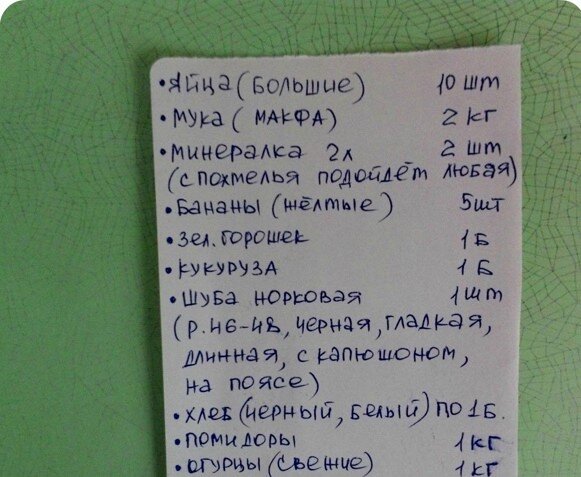 • Яйца (большие) 10 шт
• мука (МАКФА) 2 кг
• минералка 2л 2 шт
(с похмелья подойдёт любая)
• Бананы (жёлтые) 5шт
• зел. горошек 1 Б
• кукуруза 1 Б
• шуба норковая 1 шт
(р.46-48, черная, гладкая,
длинная, с капюшоном,
на поясе)
• хлеб (черный, белый) по 1 Б.
• помидоры 1 кг
• огурцы (свежие) 1 кг